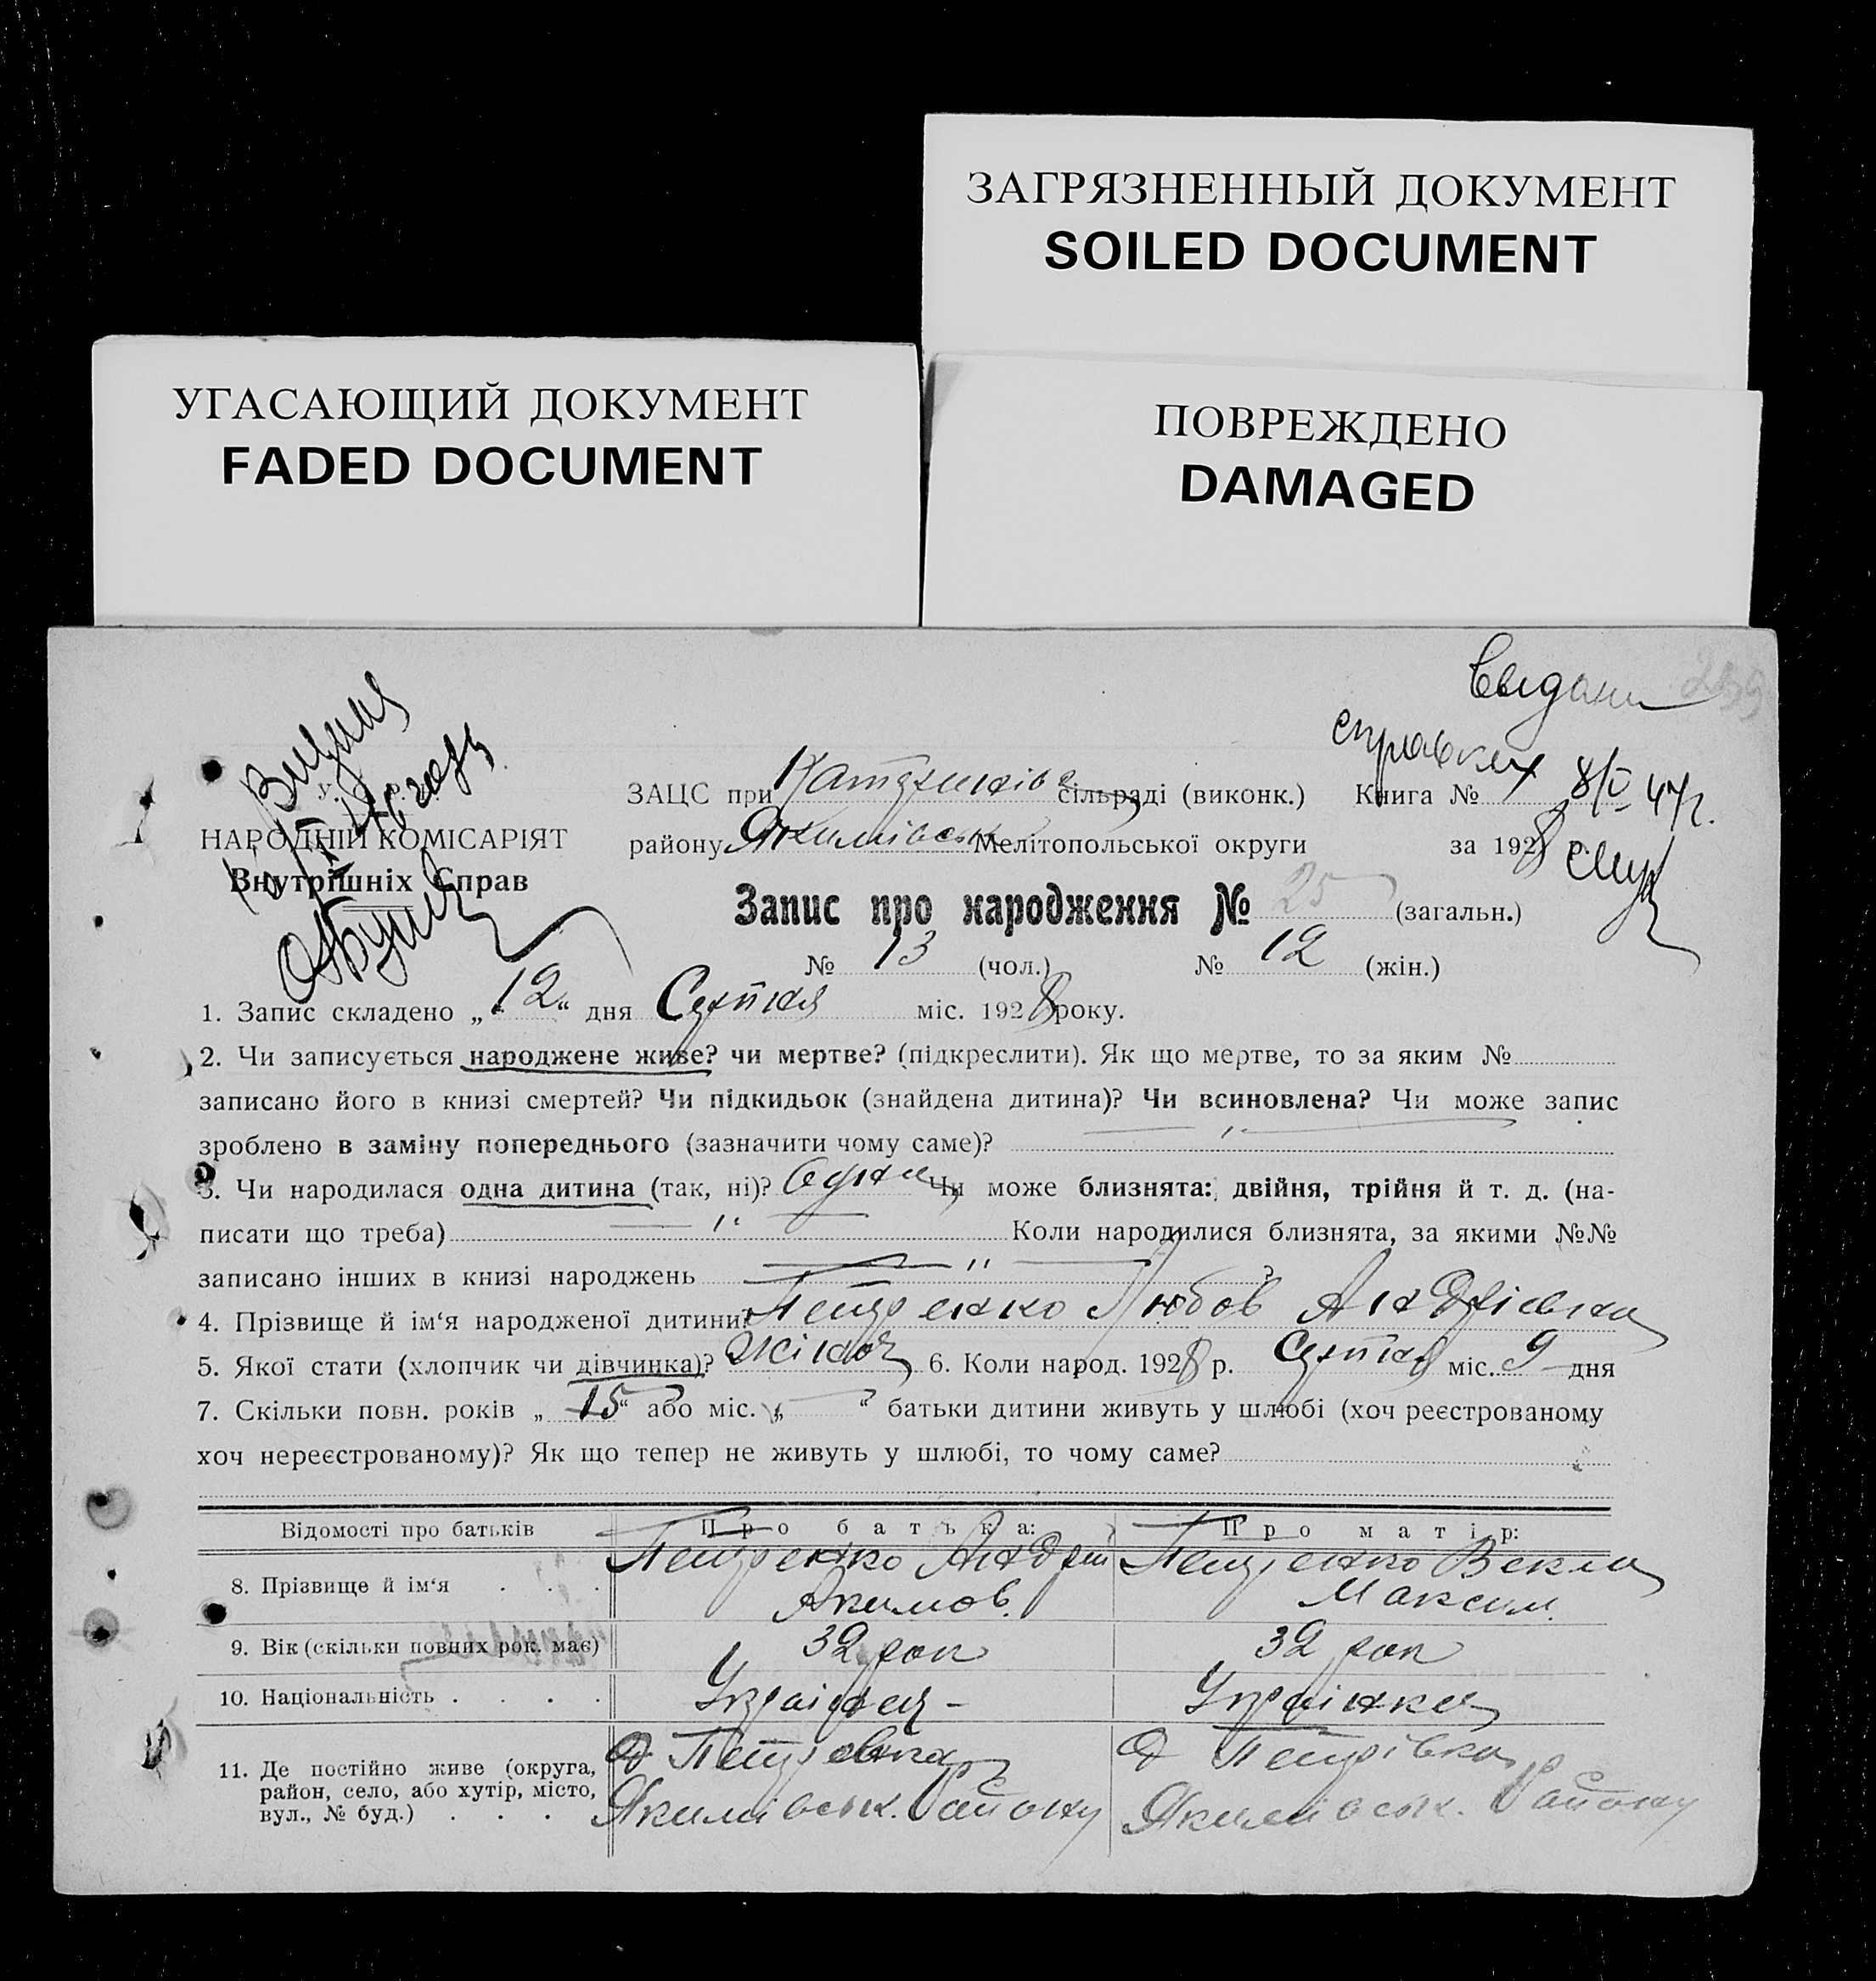 ЗАГРЯЗНЕННЫЙ ДОКУМЕНТ
SOILED DOCUMENT
УГАСАЮЩИЙ ДОКУМЕНТ
FADED DOCUMENT
ПОВРЕЖДЕНО
DAMAGED
Видана
справка 8/V 47г.
НАРОДНІЙ КОМІСАРІЯТ
Внутрішніх Справ
ЗАЦС при сільраді (виконк.) Книга №
району Якимівськ Мелітопольської округи за 1928 р.
Запис про народження № 25 (загальн.)
№ 13 (чол.) № 12 (жін.)
1. Запис складено „12“ дня Серпня міс. 1928 року.
2. Чи записується народжене живе? чи мертве? (підкреслити). Як що мертве, то за яким №
записано його в книзі смертей? Чи підкидьок (знайдена дитина)? Чи всиновлена? Чи може запис
зроблено в заміну попереднього (зазначити чому саме)?
3. Чи народилася одна дитина (так, ні)? Одна Чи може близнята: двійня, трійня й т. д. (на-
писати що треба) Коли народилися близнята, за якими №№
записано інших в книзі народжень
4. Прізвище й ім‘я народженої дитини? Петренко Любов Андріевна
5. Якої стати (хлопчик чи дівчинка)? Жіноч 6. Коли народ. 1928 р. Серпня міс. 9 дня
7. Скільки повн. років „15“ або міс. „ “ батьки дитини живуть у шлюбі (хоч реєстрованому
хоч нереєстрованому)? Як що тепер не живуть у шлюбі, то чому саме?
Відомості про батьків Про батька: Про матір:
8. Прізвище й ім‘я . . . Петренко Андрій Якимов. Петренко Векла Максим.
9. Вік (скільки повних рок. має) 32 рок 32 рок
10. Національність . . . . Українец Українка
11. Де постійно живе (округа, Петровка Петрівка
район, село, або хутір, місто, Якимівськ. Району Якимівськ. Району
вул., № буд.) . . .